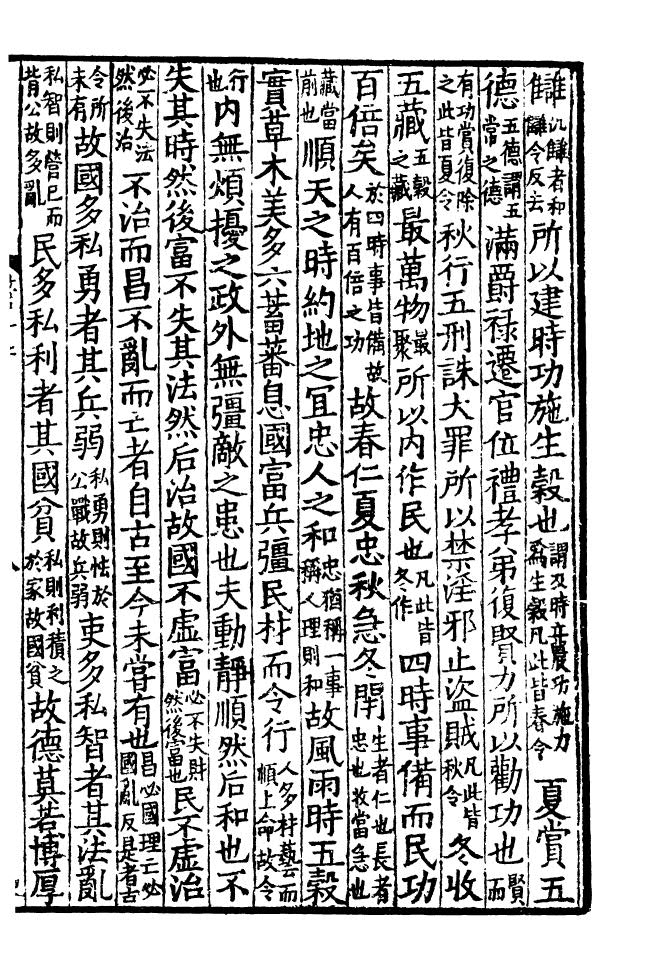 讎沉讎者和讎令反去所以建時功施生穀也謂及時立農功施力爲生穀凡此皆春令夏賞五
德五德謂五常之德滿爵祿遷官位禮孝弟復賢力所以勸功也賢而
有功賞復除之此皆夏令秋行五刑誅大罪所以禁淫邪止盜賊凡此皆秋令冬收
五藏五穀之藏最萬物最聚所以內作民也凡此皆冬作四時事備而民功
百倍矣於四時事皆備故人有百倍之功故春仁夏忠秋急冬閉生者仁也長者忠也收當急也
藏當前也順天之時約地之宜忠人之和忠猶稱一事稱人理則和故風雨時五穀
實草木美多六畜蕃息國富兵彊民材而令行人多材藝而順上命故令
行也內無煩擾之政外無彊敵之患也夫動靜順然后和也不
失其時然後富不失其法然后治故國不虛富必不失財然後富也民不虛治
必不失法然後治不治而昌不亂而亡者自古至今未嘗有也昌必國理亡必國亂反是者古
令所未有故國多私勇者其兵弱私勇則怯於公戰故兵弱吏多私智者其法亂
私智則營已而背公故多亂民多私利者其國貧私則利積之於家故國貧故德莫若博厚